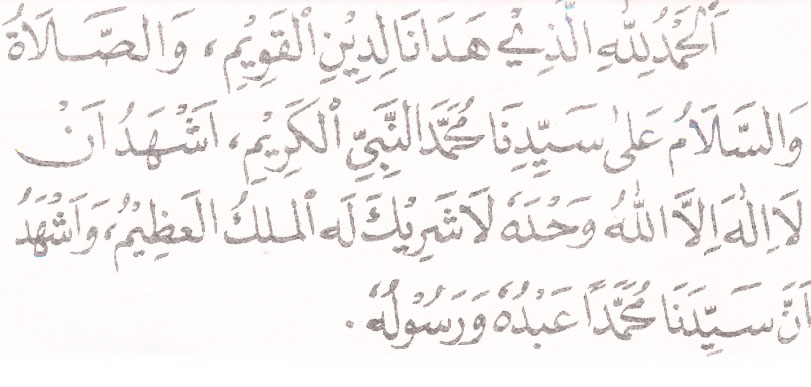 اَلْحَمْدُ لِلّٰهِ الَّذِيْ هَدَانَا لِدِيْنِ الْقَوِيْمِ، وَالصَّلَاةُ
وَالسَّلَامُ عَلىٰ سَيِّدِنَا مُحَمَّدَ النَّبِيِّ الْكَرِيْمِ، اَشْهَدُ اَنْ
لَا اِلٰهَ اِلَّا اللّٰهُ وَحْدَهٗ لَا شَرِيْكَ لَه الْملكُ الْعَظِيْمُ، وَاَشْهَدُ
اَنَّ سَيِّدَنَا مُحَمَّدًا عَبْدُهٗ وَرَسُوْلُهٗ.